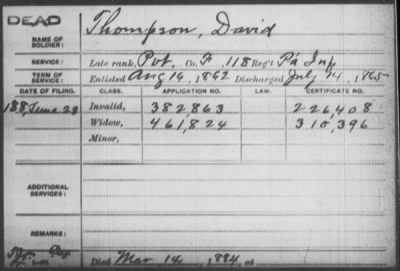 DEAD
NAME OF SOLDIER: Thompson, David
SERVICE: Late rank, Pvt. Co. F. 118 Reg't Pa Inf
TERM OF SERVICE: Enlisted Aug 14, 1862 Discharged July 14, 1865
DATE OF FILING. CLASS. APPLICATION NO. LAW. CERTIFICATE NO.
188, June 23 Invalid, 382,863 226,408
Widow, 461,824 310,396
Minor,
ADDITIONAL SERVICES:
REMARKS:
Died Mar 14, 1884, at